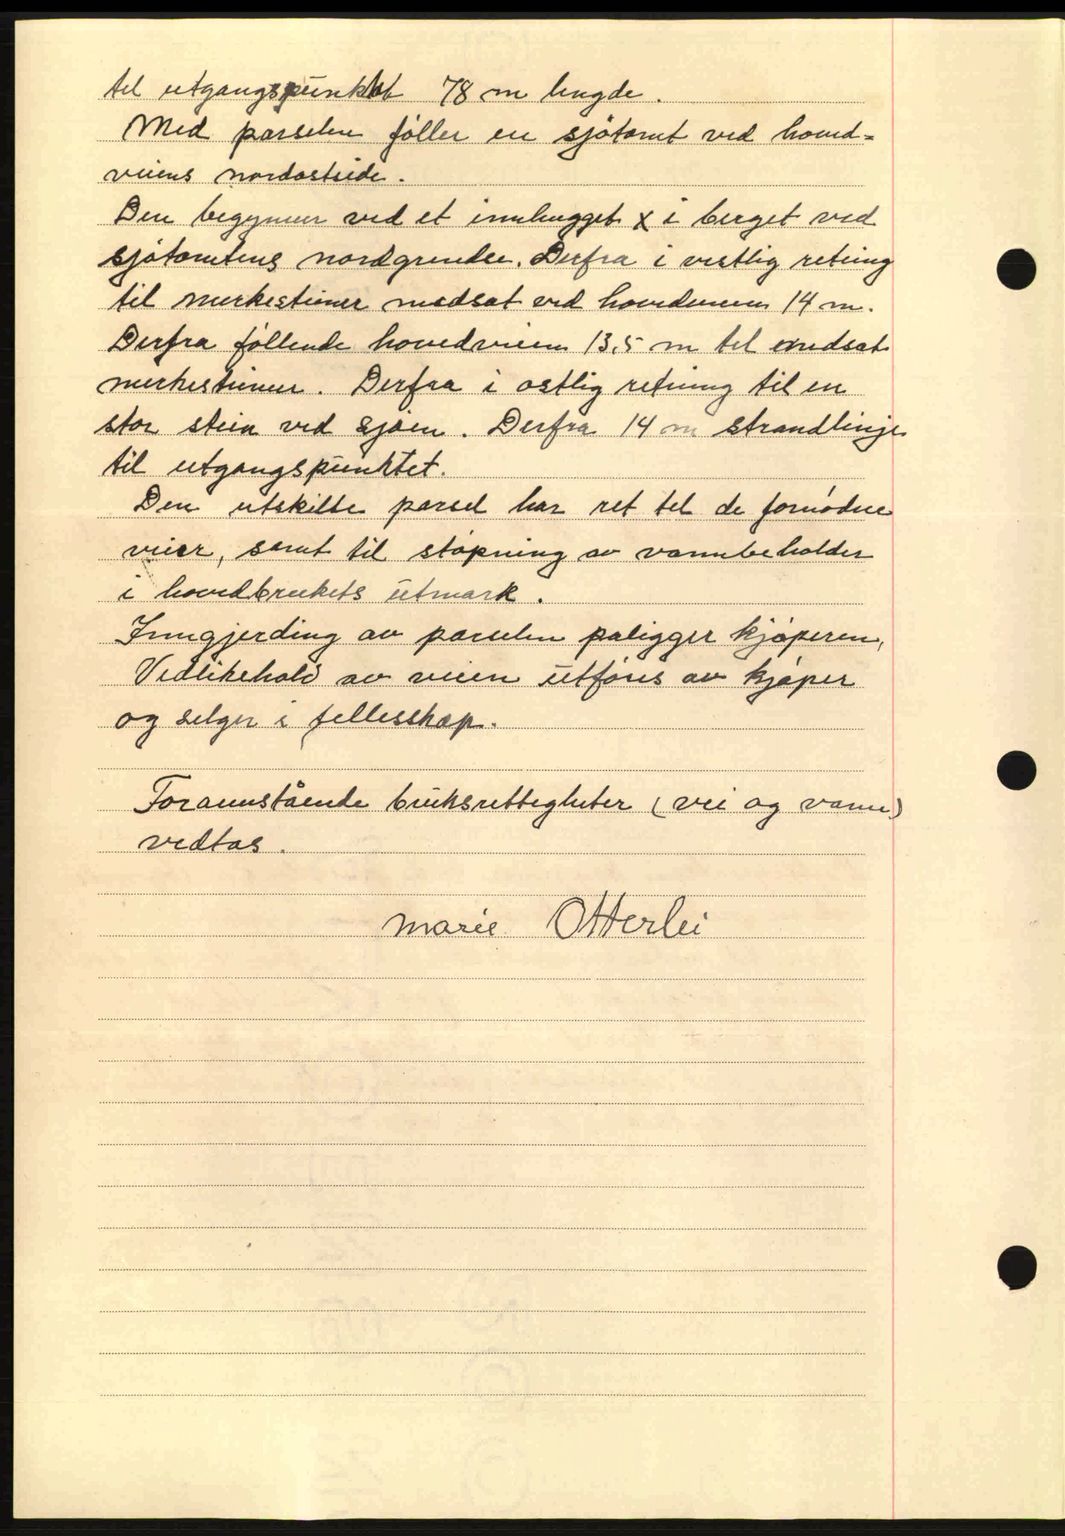 til utgangspunktet 78 m lengde.
Med parselen føller en sjøtomt ved hoved=
veiens nordøstside.
Den begynner ved et innhugget X i berget ved
sjøtomtens nordgrendse. Derfra i vestlig retning
til merkestiener nedsat ved hovedveien 14 m.
Derfra føllende hovedveien 13,5 m til nedsat
merkestiener. Derfra i østlig retning til en
stor stein ved sjøen. Derfra 14 m strandlinje
til utgangspunktet.
Den utskilte parsel har ret til de fornødne
veier, samt til støpning av vannbeholder
i hovedbrukets utmark.
Inngjerding av parselen paligger kjøperen,
Vedlikehold av veien utføres av kjøper
og selger i fellesskap.
Forannstående bruksrettigheter (vei og vann)
vedtas.
Marie Otterlei